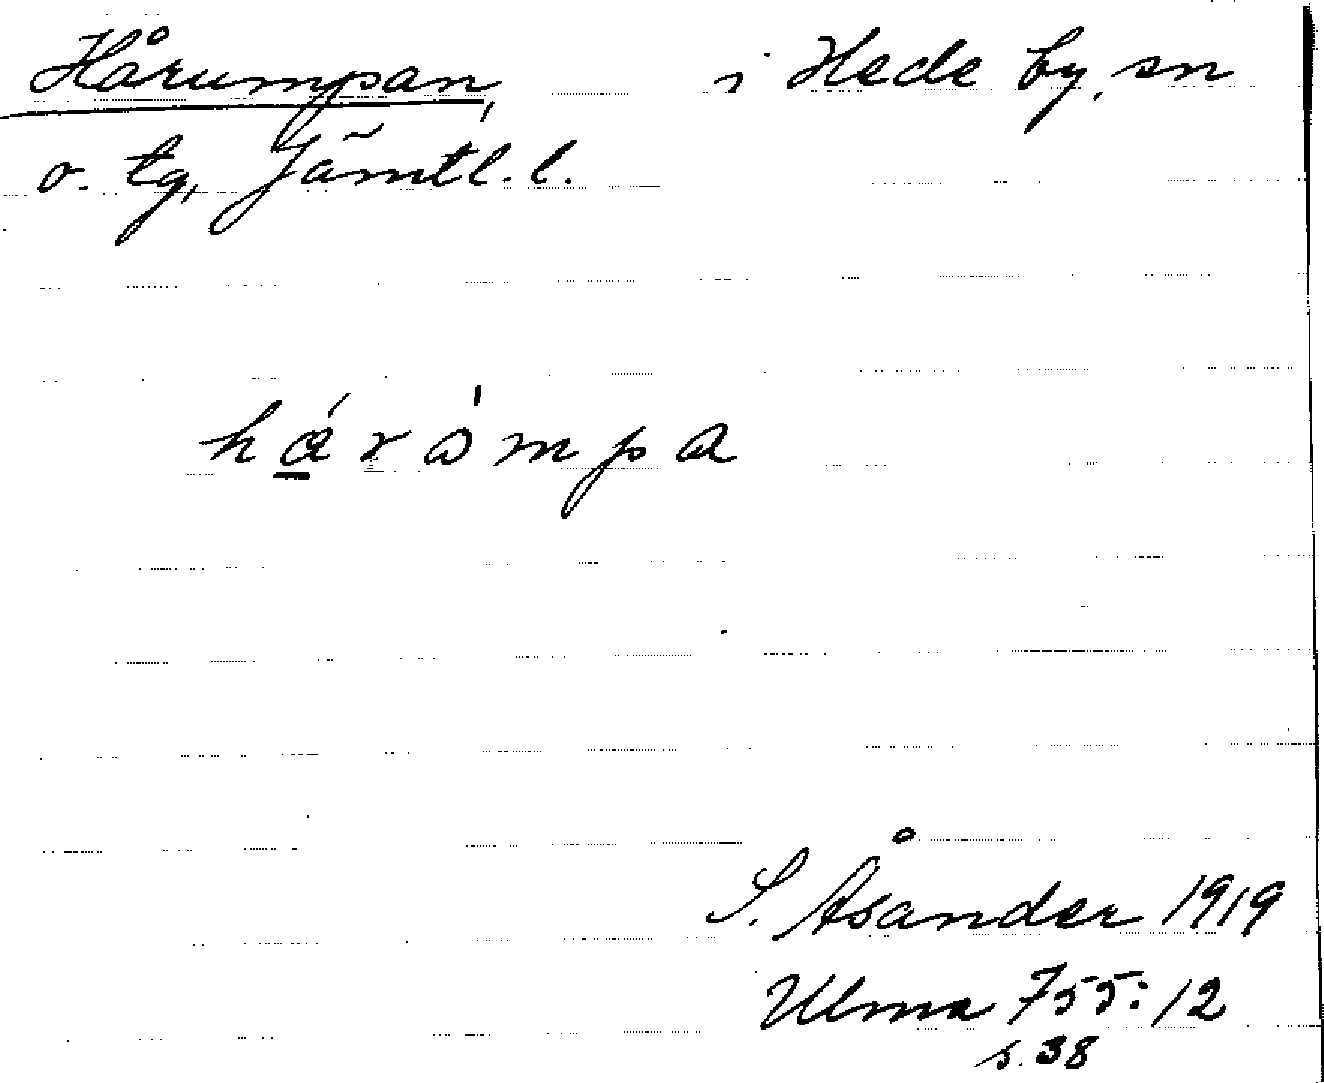 Hårumpan, i Hede by, sn
o. tg, Jämtl. l.
hárȧmpa
S. Åsander 1919
Ulma 755:12
s. 38